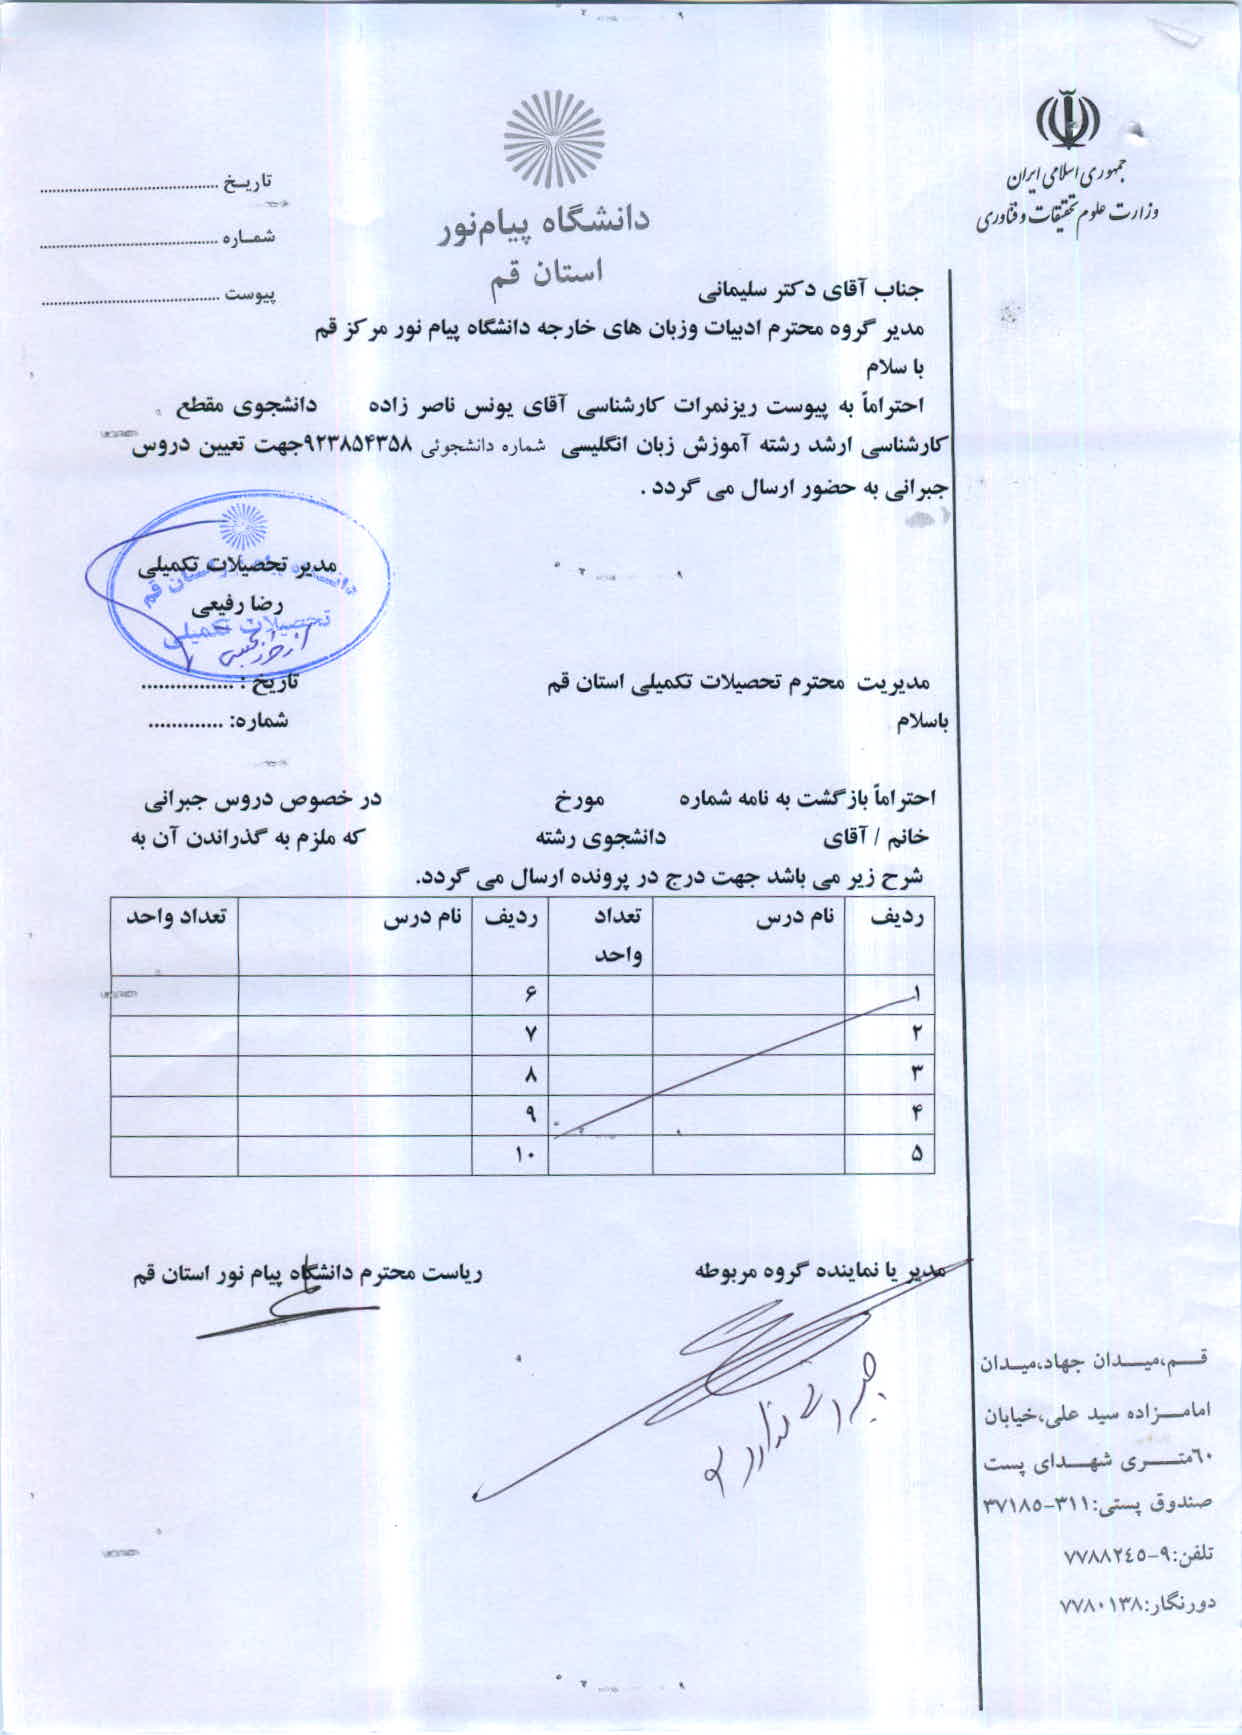 جمهوری اسلامی ایران
وزارت علوم تحقیقات و فناوری
دانشگاه پیام‌نور
استان قم
تاریخ ........................................
شماره ........................................
پیوست ........................................
جناب آقای دکتر سلیمانی
مدیر گروه محترم ادبیات وزبان های خارجه دانشگاه پیام نور مرکز قم
با سلام
احتراماً به پیوست ریزنمرات کارشناسی آقای یونس ناصر زاده دانشجوی مقطع
کارشناسی ارشد رشته آموزش زبان انگلیسی شماره دانشجوئی ۹۲۳۸۵۴۳۵۸جهت تعیین دروس
جبرانی به حضور ارسال می گردد .
مدیر تحصیلات تکمیلی
رضا رفیعی
دانشگاه پیام نور استان قم
تحصیلات تکمیلی
مدیریت محترم تحصیلات تکمیلی استان قم
تاریخ : ................
باسلام
شماره: .............
احتراماً بازگشت به نامه شماره مورخ در خصوص دروس جبرانی
خانم / آقای دانشجوی رشته که ملزم به گذراندن آن به
شرح زیر می باشد جهت درج در پرونده ارسال می گردد.
ردیف نام درس تعداد واحد ردیف نام درس تعداد واحد
۱ ۶
۲ ۷
۳ ۸
۴ ۹
۵ ۱۰
مدیر یا نماینده گروه مربوطه
ریاست محترم دانشگاه پیام نور استان قم
جبرانی ندارد
قم،میدان جهاد،میدان
امامزاده سید علی،خیابان
٦٠متری شهدای پست
صندوق پستی:۳۱۱-۳۷۱۸۵
تلفن:۹-۷۷۸۸۲٤۵
دورنگار:۷۷۸۰۱۳۸